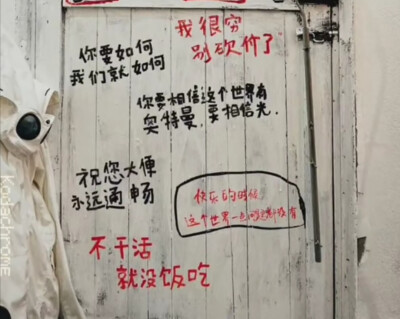 我很穷
别砍价了
你要如何
我们就如何
你要相信这个世界有
奥特曼,要相信光.
祝您大便
永远通畅
快乐的时候
这个世界一点
不干活
就没饭吃
kodachrome